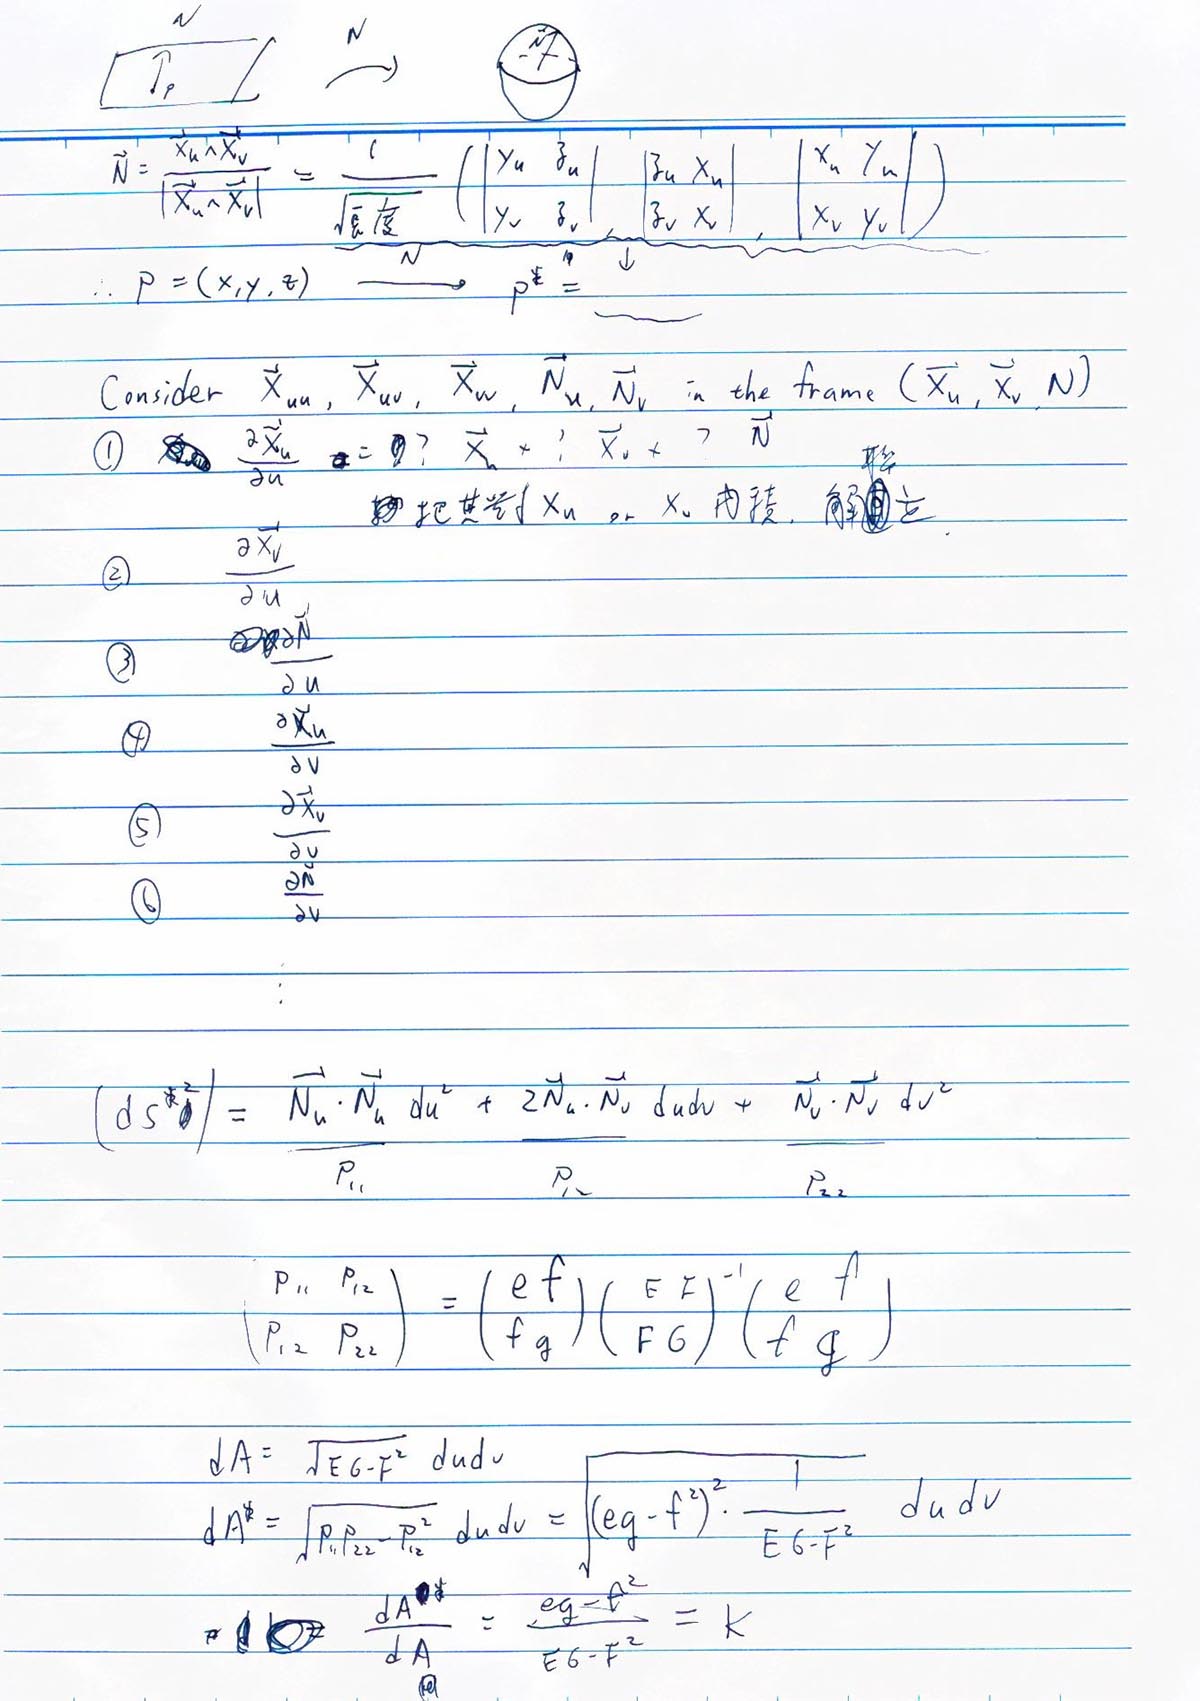 N N N
P
N⃗ = X⃗u ∧ X⃗v / |X⃗u ∧ X⃗v| = 1 / √長度 ( | yu zu ; yv zv | , | zu xu ; zv xv | , | xu yu ; xv yv | )
∴ P = (x, y, z) —N→ P* =
Consider X⃗uu, X⃗uv, X⃗vv, N⃗u, N⃗v in the frame (X⃗u, X⃗v, N)
① ∂X⃗u/∂u = ? X⃗u + ? X⃗v + ? N⃗
把其對 Xu or Xv 內積, 解聯立.
② ∂X⃗v/∂u
③ ∂N⃗/∂u
④ ∂X⃗u/∂v
⑤ ∂X⃗v/∂v
⑥ ∂N⃗/∂v
⋮
(ds*²) = N⃗u · N⃗u du² + 2N⃗u · N⃗v dudv + N⃗v · N⃗v dv²
P₁₁ P₁₂ P₂₂
( P₁₁ P₁₂ ; P₁₂ P₂₂ ) = ( e f ; f g ) ( E F ; F G )⁻¹ ( e f ; f g )
dA = √(EG-F²) dudv
dA* = √(P₁₁P₂₂ - P₁₂²) dudv = √((eg-f²)² · 1/(EG-F²)) dudv
dA*/dA = (eg-f²)/(EG-F²) = K